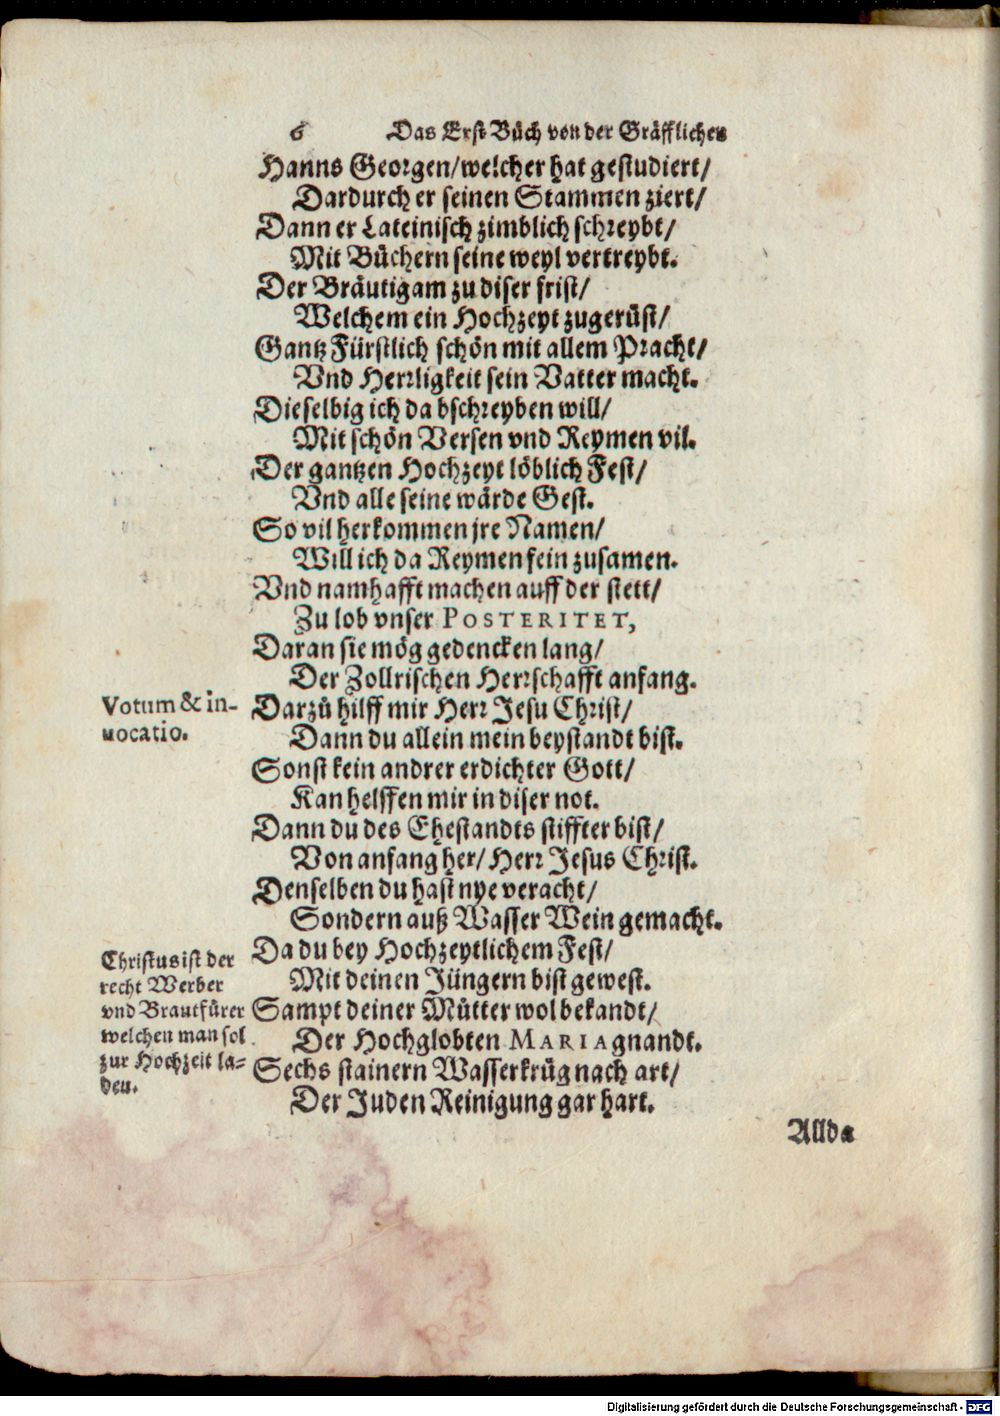 6 Das Erst Bůch von der Gräfflichen
Hanns Georgen/welcher hat gestudiert/
Dardurch er seinen Stammen ziert/
Dann er Lateinisch zimblich schreybt/
Mit Büchern seine weyl vertreybt.
Der Bräutigam zu diser frist/
Welchem ein Hochzeyt zugerüst/
Gantz Fürstlich schön mit allem Pracht/
Vnd Herrligkeit sein Vatter macht.
Dieselbig ich da bschreyben will/
Mit schön Versen vnd Reymen vil.
Der gantzen Hochzeyt löblich Fest/
Vnd alle seine wärde Gest.
So vil herkommen jre Namen/
Will ich da Reymen fein zusamen.
Vnd namhafft machen auff der stett/
Zu lob vnser POSTERITET,
Daran sie mög gedencken lang/
Der Zollrischen Herrschafft anfang.
Votum & in-
uocatio.
Darzů hilff mir Herr Jesu Christ/
Dann du allein mein beystandt bist.
Sonst kein andrer erdichter Gott/
Kan helffen mir in diser not.
Dann du des Ehestandts stiffter bist/
Von anfang her/ Herr Jesus Christ.
Denselben du hast nye veracht/
Sondern auß Wasser Wein gemacht.
Christus ist der
recht Werber
vnd Brautfürer
welchen man sol
zur Hochzeit la-
den.
Da du bey Hochzeytlichem Fest/
Mit deinen Jüngern bist gewest.
Sampt deiner Můtter wol bekandt/
Der Hochglobten MARIA gnandt.
Sechs stainern Wasserkrüg nach art/
Der Juden Reinigung gar hart.
Allda
Digitalisierung gefördert durch die Deutsche Forschungsgemeinschaft - DFG